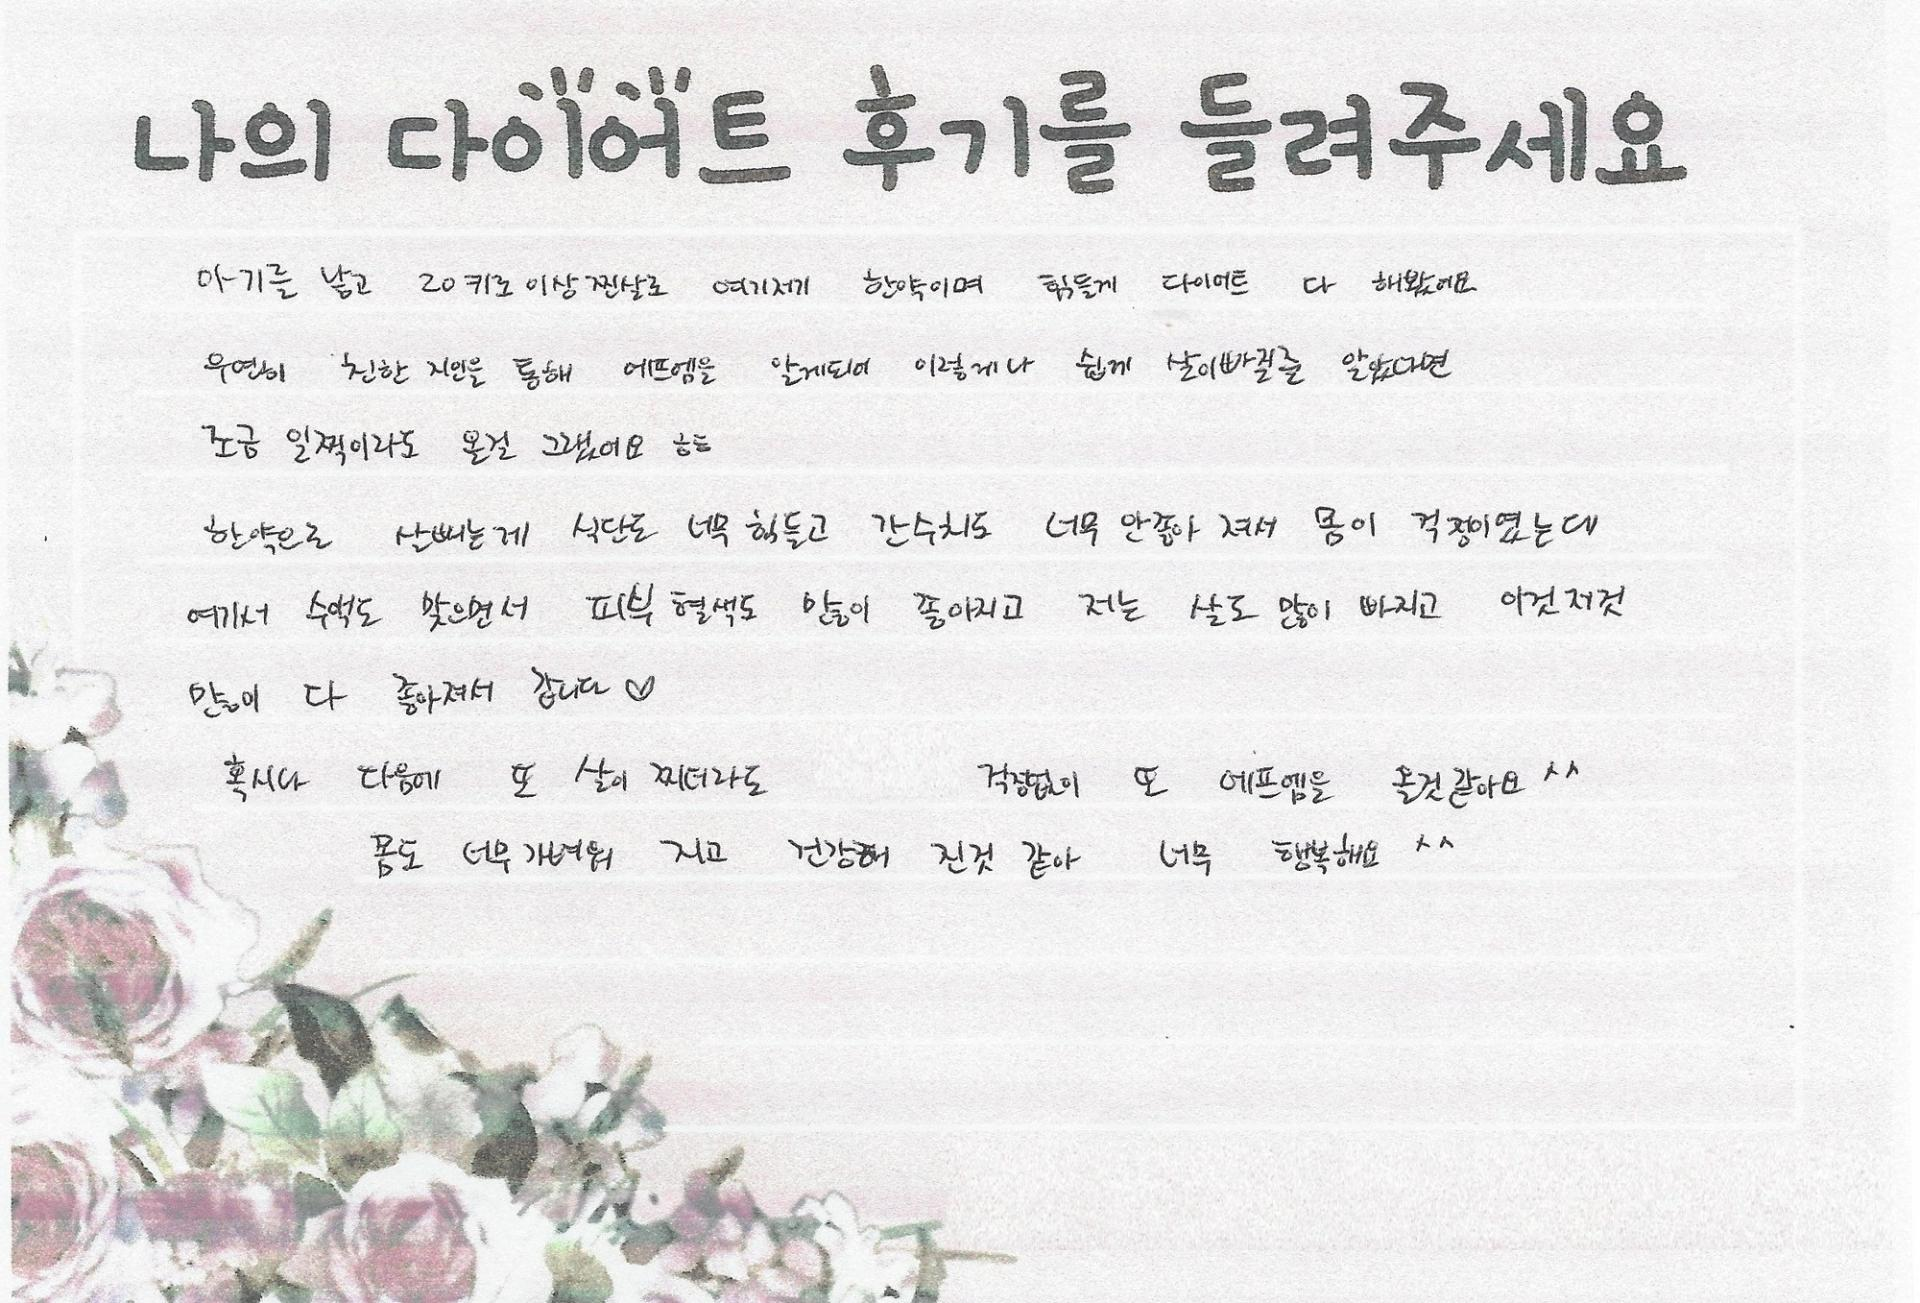 나의 다이어트 후기를 들려주세요
아기를 낳고 20키로이상 찐살로 여기저기 한약이며 힘들게 다이어트 다 해봤어요
우연히 친한 지인을 통해 에프엠을 알게되어 이렇게나 쉽게 살이빠질줄 알았다면
조금 일찍이라도 올걸 그랬어요 ㅎㅎ
한약으로 살빼는게 식단도 너무 힘들고 간수치도 너무 안좋아 져서 몸이 걱정이였는데
여기서 수액도 맞으면서 피부 혈색도 많이 좋아지고 저는 살도 많이 빠지고 이것저것
많이 다 좋아져서 갑니다 ♡
혹시나 다음에 또 살이 찌더라도 걱정없이 또 에프엠을 올것같아요 ^^
몸도 너무 가벼워 지고 건강해 진것 같아 너무 행복해요 ^^